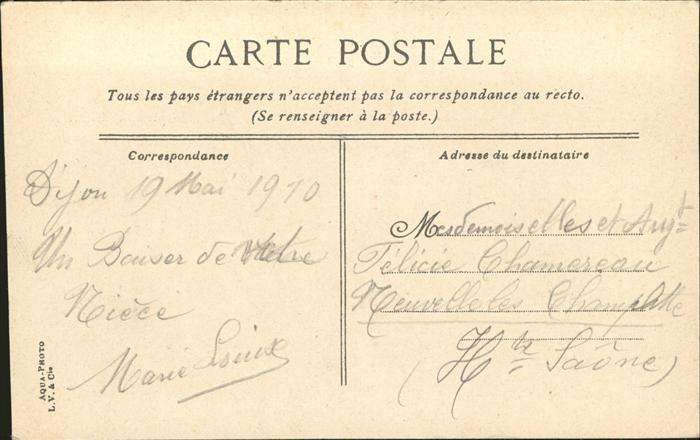 CARTE POSTALE
Tous les pays étrangers n'acceptent pas la correspondance au recto.
(Se renseigner à la poste.)
Correspondance
Dijon 19 Mai 1910
Un Baiser de votre
Nièce
Marie Louise
Adresse du destinataire
Mesdemoiselles et Augte
Félicie Chamereau
Neuvelle les Champlitte
(Hte Saône)
AQUA-PHOTO
L.V. & Cie